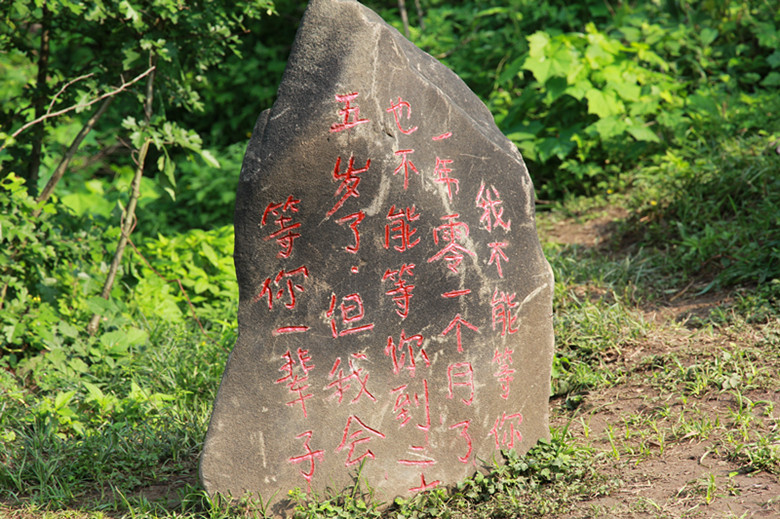 我不能等你
一年零一个月了
也不能等你到二十
五岁了.但我会
等你一辈子